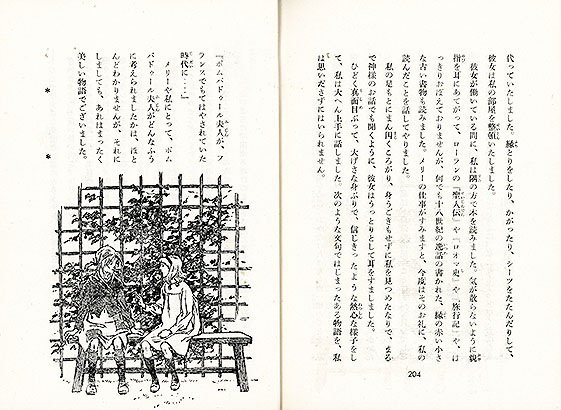 代っていたしました。縁とりをしたり、かがったり、シーツをたたんだりして、
彼女は私の部屋を整頓いたしました。
彼女が働いている間に、私は隅の方で本を読みました。気が散らないように親
指を耳にあてがって、ローランの『聖人伝』や『ロオマ史』や『旅行記』や、は
っきりおぼえておりませんが、何でも十八世紀の逸話の書かれた、縁の赤い小さ
な古い書物も読みました。メリーの仕事がすみますと、今度はそのお礼に、私の
読んだことを話してやりました。
私の足もとにまん円くころがり、身うごきもせずに私を見つめたなりで、まる
で神様のお話でも聞くように、彼女はうっとりとして耳をすましました。
ひどく真面目ぶって、大げさな身ぶりで、信じきったような熱心な様子をし
て、私は大へん上手に話しました。次のような文句ではじまったある物語を、私
は思いださずにはいられません。
204
『ポムパドゥール夫人が、フ
ランスでもてはやされていた
時代に・・・』
メリーや私にとって、ポム
パドゥール夫人がどんなふう
に考えられましたかは、ほと
んどわかりませんが、それに
しましても、あれはまったく
美しい物語でございました。
* *